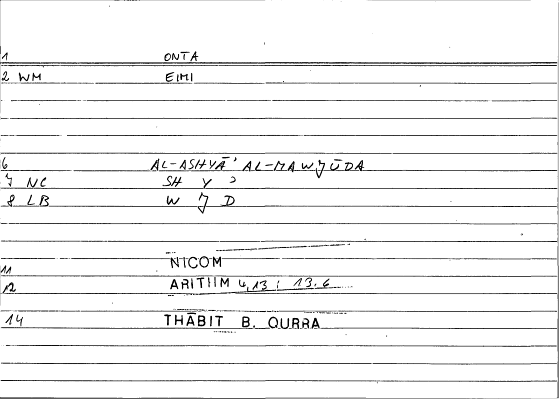 1 ONTA
2 WM EIMI
6 AL-ASHYĀ' AL-MAWJŪDA
7 NC SH Y '
8 LB W J D
11 NICOM
12 ARITIIM 4,13 : 13.6
14 THĀBIT B. QURRA